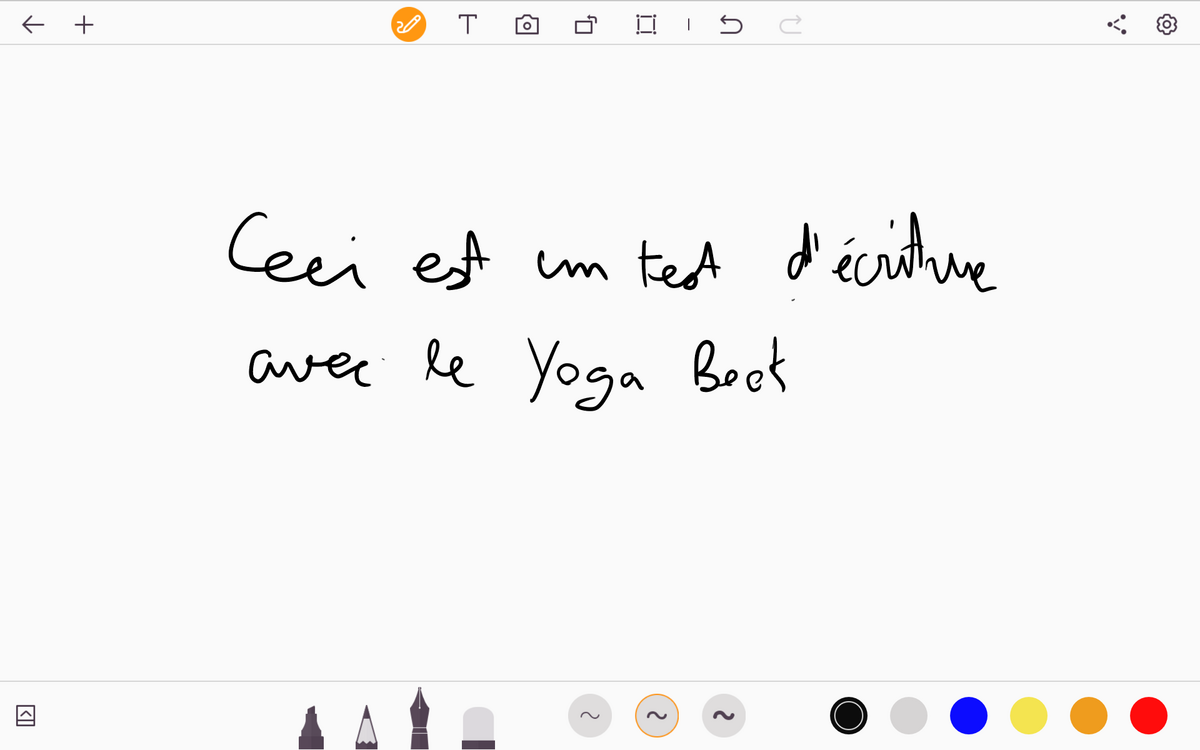 Ceci est un test d'écriture
avec le Yoga Book